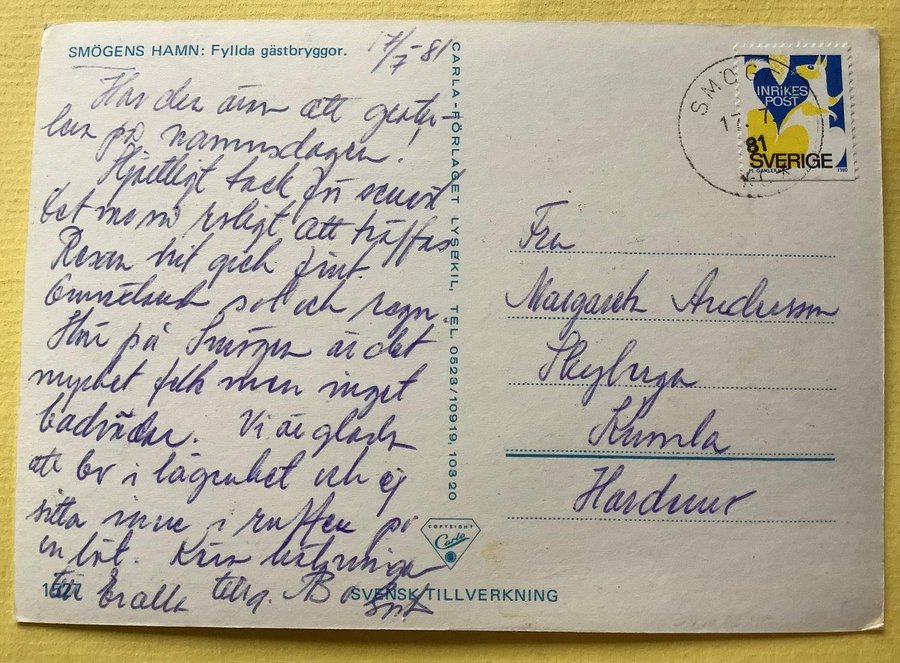 SMÖGENS HAMN: Fyllda gästbryggor.
17/7-81
Har den äran att gratu-
lera på namnsdagen!
Hjärtligt tack för senast
Det var så roligt att träffas
Resan hit gick fint.
Omväxlande sol och regn.
Här på Smögen är det
mycket folk men inget
badväder. Vi är glada
att bo i lägenhet och ej
sitta inne i ruffen på
en båt. Kära hälsningar
till Er alla
CARLA-FÖRLAGET LYSEKIL, TEL. 0523/10919, 10320
SMÖG
81
INRIKES
POST
SVERIGE
1980
Fru
Margareth Andersson
Skyberga
Kumla
Hardemo
COPYRIGHT
Carla
1527
SVENSK TILLVERKNING